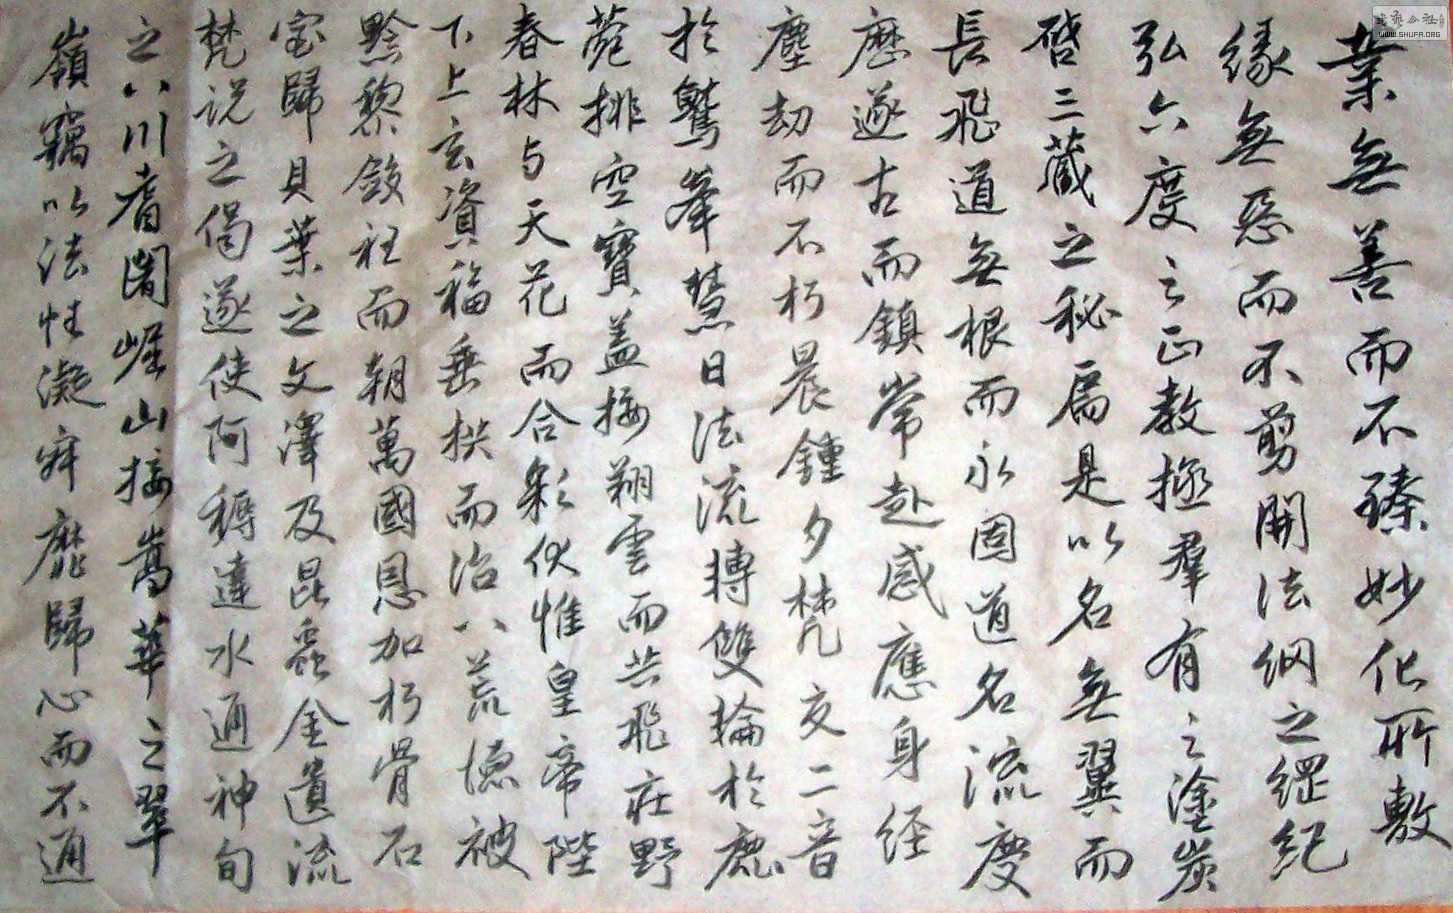 業無善而不臻妙化所敷
緣無惡而不剪開法網之綱紀
弘六度之正教拯羣有之塗炭
啓三藏之秘扃是以名無翼而
長飛道無根而永固道名流慶
歷遂古而鎮常赴感應身經
塵劫而不朽晨鍾夕梵交二音
於鷲峯慧日法流轉雙輪於鹿
菀排空寶蓋接翔雲而共飛庄野
春林与天花而合彩伏惟皇帝陛
下上玄資福垂拱而治八荒德被
黔黎斂衽而朝萬國恩加朽骨石
室歸貝葉之文澤及昆蟲金匱流
梵說之偈遂使阿耨達水通神甸
之八川耆闍崛山接嵩華之翠
嶺竊以法性凝寂靡歸心而不通
WWW.SHUFA.ORG